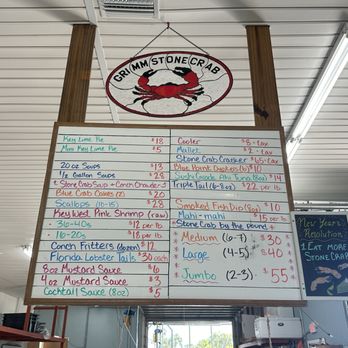 GRIMM STONE CRAB
Key Lime Pie $18
Mini Key Lime Pie $5
20oz Soups $13
1/2 Gallon Soups $28
* Stone Crab Soup * Conch Chowder *
Blue Crab Cakes (2) $20
Scallops (10-15) $28
Key West Pink Shrimp (raw)
• 36-40s $12 per lb
• 16-20s $18 per lb
Conch Fritters (dozen) $12
Florida Lobster Tails $30 each
8oz Mustard Sauce $6
4oz Mustard Sauce $3
Cocktail Sauce (8oz) $5
Cooler $8 + tax
Mallet $2 + tax
Stone Crab Cracker $65 + tax
Blue Point Oysters (½) $10
Sushi Grade Ahi Tuna (8oz) $14
Triple Tail (6-8oz) $22 per lb
Smoked Fish Dip (8oz) $10
Mahi-mahi $15 per lb
* Stone Crab by the pound *
Medium (6-7) $30
Large (4-5) $40
Jumbo (2-3) $55
New Years
Resolution
1 EAT MORE
STONE CRAB